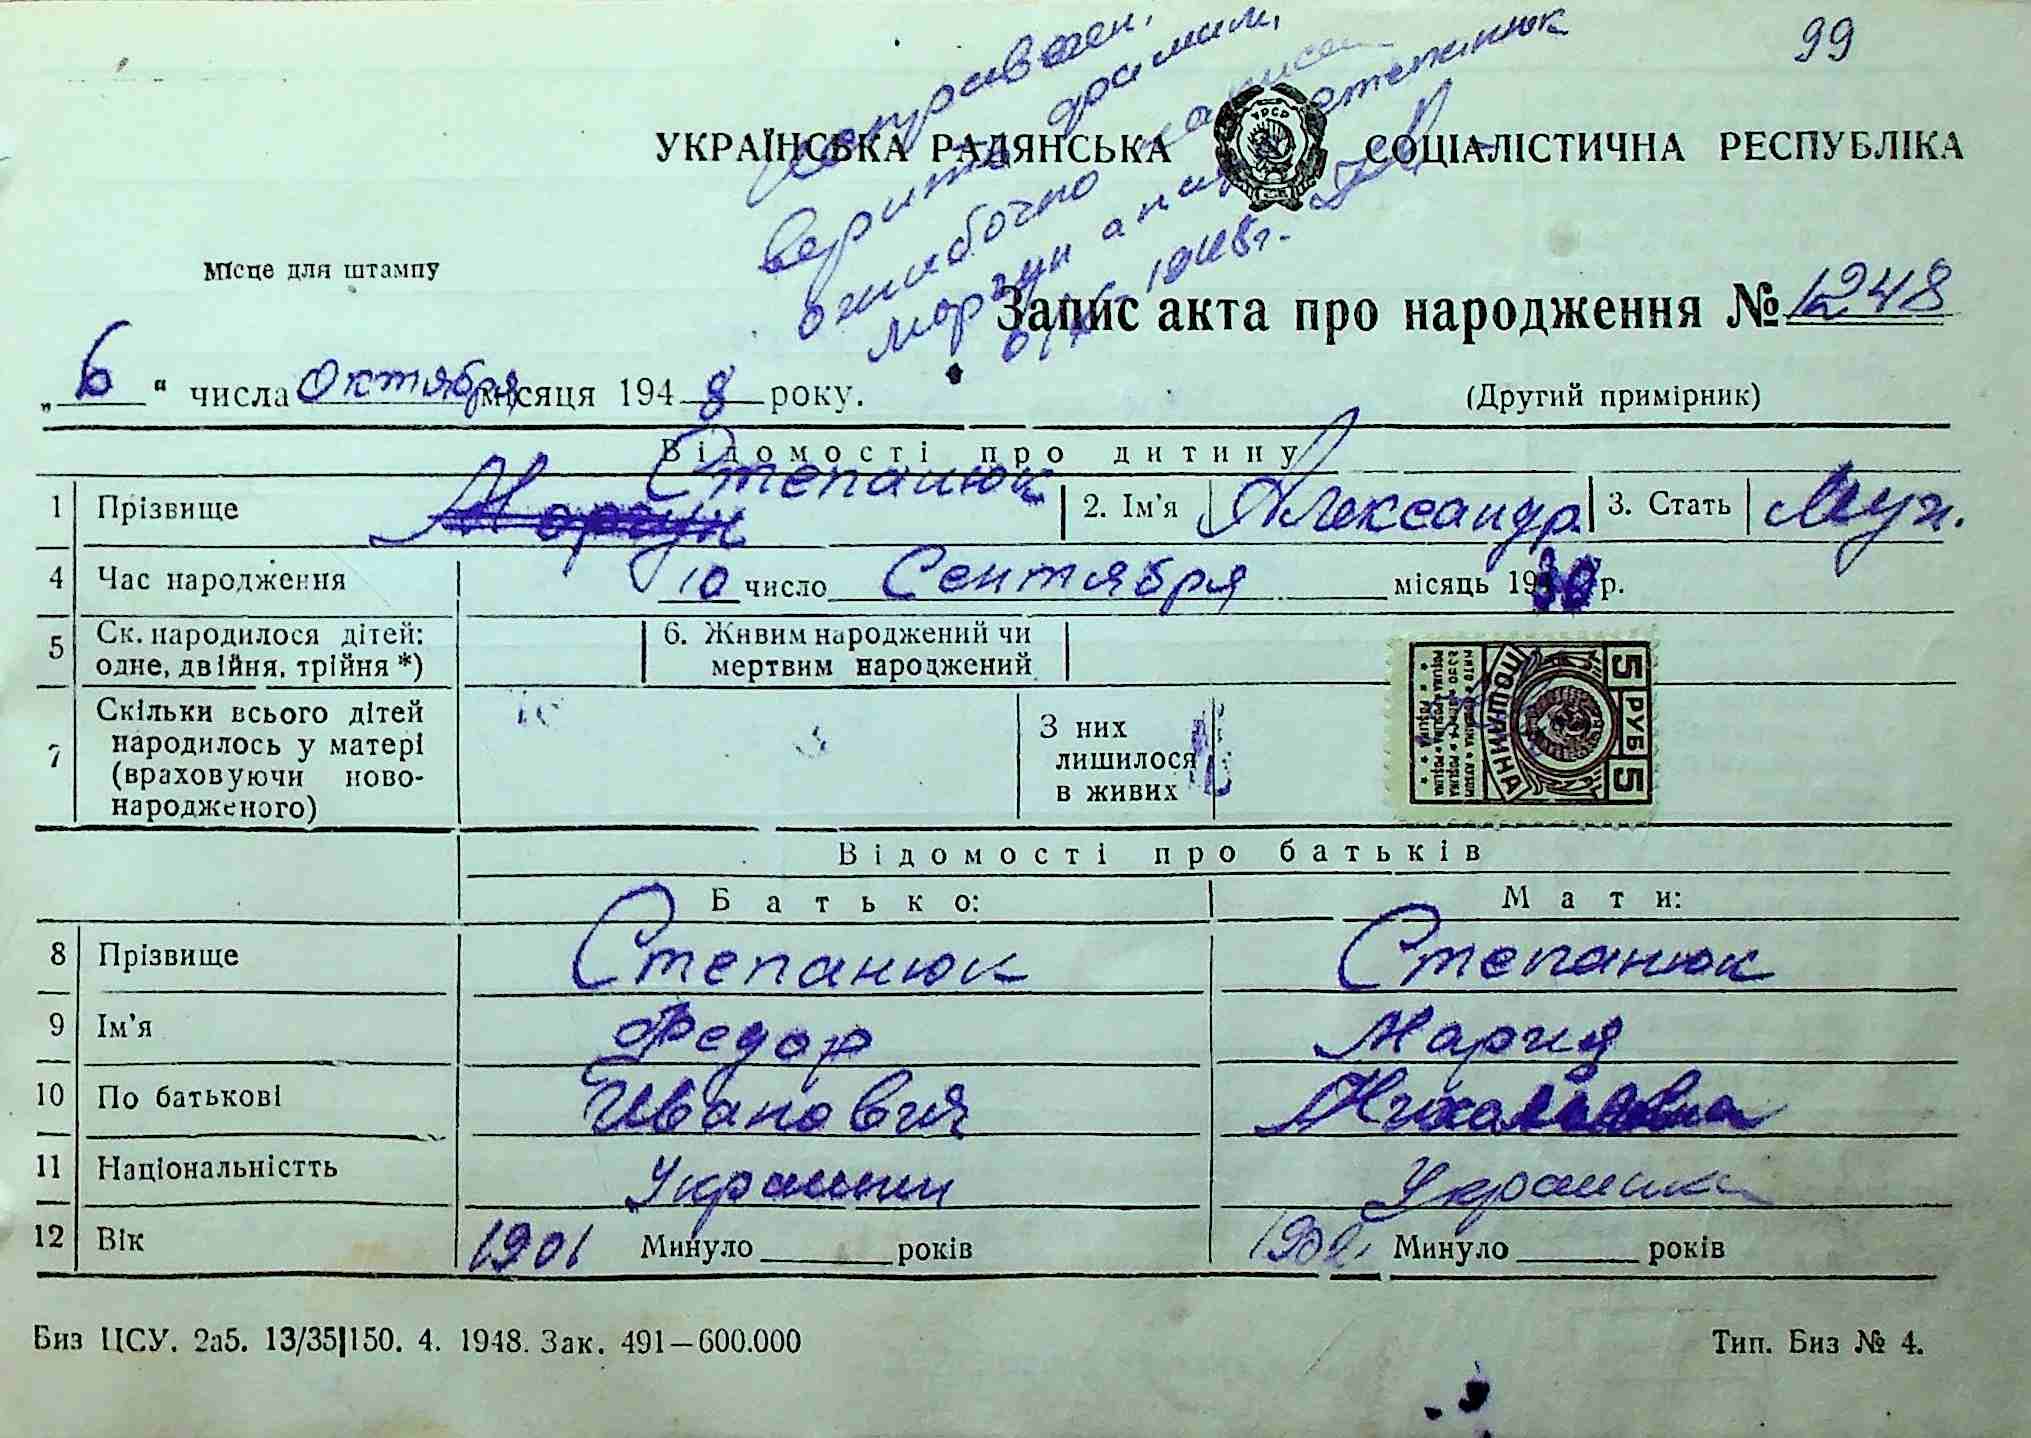 99
Исправлен.
верить фамилии,
ошибочно записан
Моргун а пи Степанюк
6/X-1948г.
УКРАЇНСЬКА РАДЯНСЬКА СОЦІАЛІСТИЧНА РЕСПУБЛІКА
УРСР
Місце для штампу
Запис акта про народження № 1248
„6" числа Октября місяця 1948 року.
(Другий примірник)
Відомості про дитину
1 Прізвище Моргун Степанюк 2. Ім'я Александр 3. Стать Муж.
4 Час народження 10 число Сентября місяць 1930 р.
5 Ск. народилося дітей: одне, двійня, трійня *) 6. Живим народжений чи мертвим народжений
7 Скільки всього дітей народилось у матері (враховуючи ново-народженого) З них лишилося в живих
5 РУБ 5
ПОШЛИНА
Відомості про батьків
Батько: Мати:
8 Прізвище Степанюк Степанюк
9 Ім'я Федор Мария
10 По батькові Иванович
11 Національністть Украинец Украинка
12 Вік 1901 Минуло років Минуло років
Биз ЦСУ. 2а5. 13/35|150. 4. 1948. Зак. 491—600.000
Тип. Биз № 4.